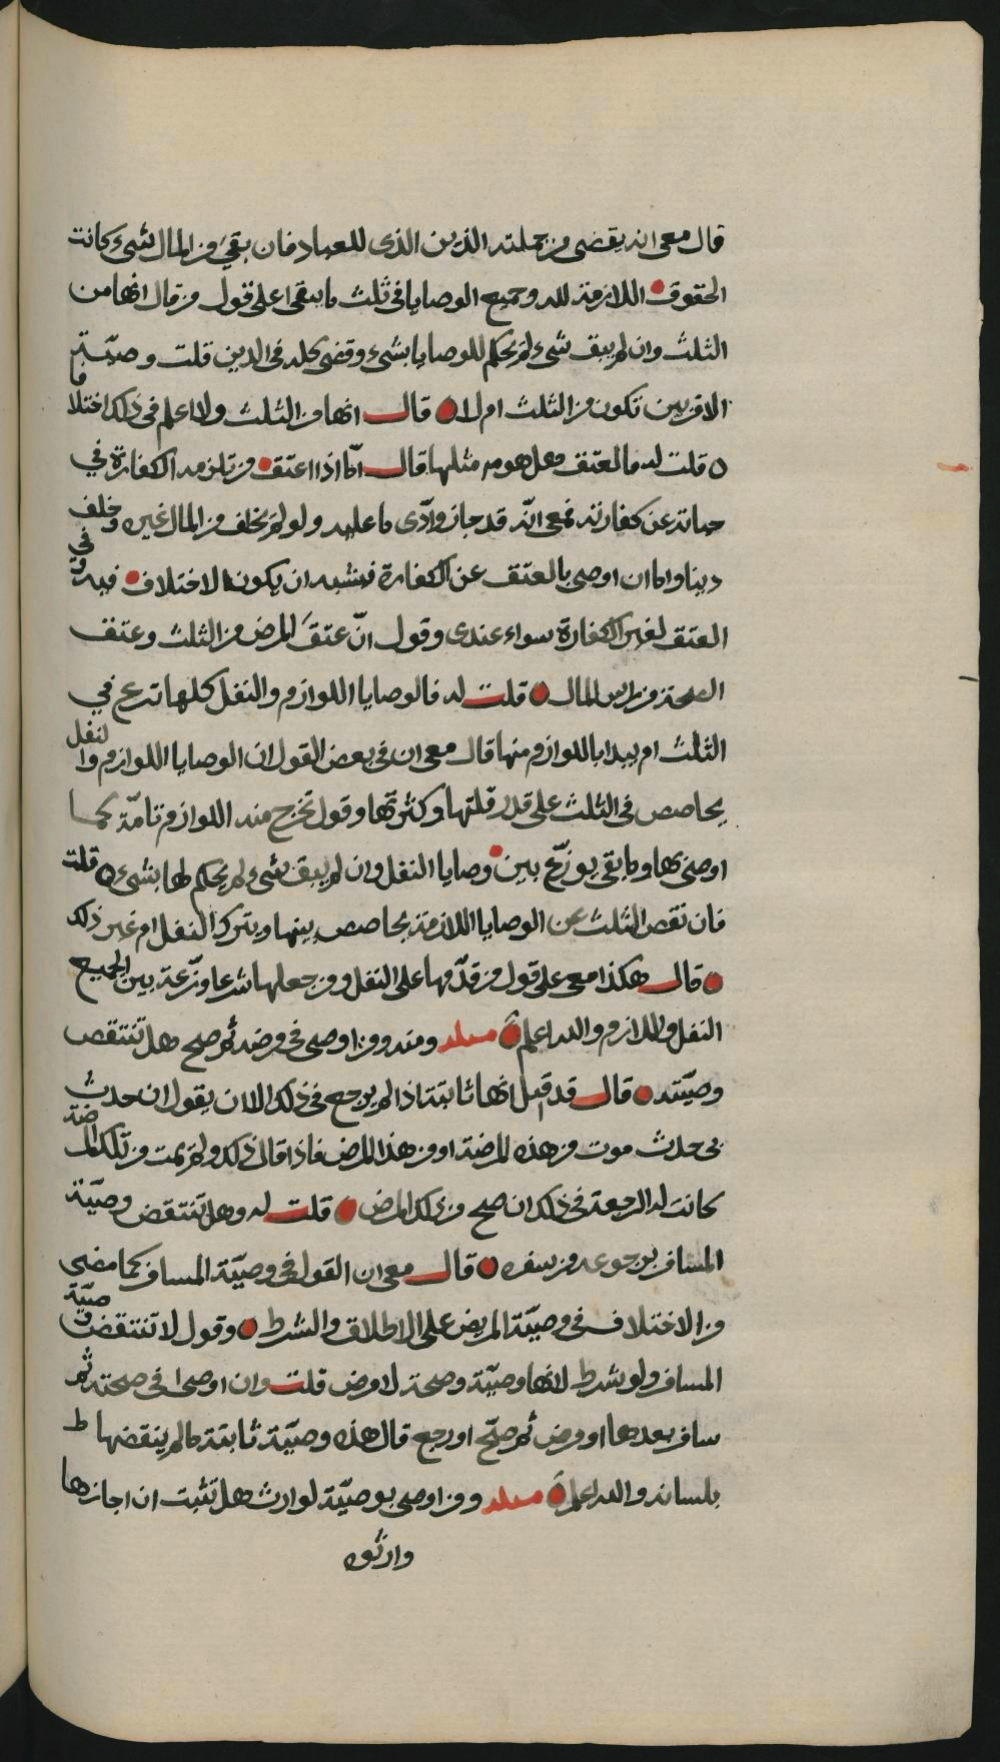 قال معي انه يقضى من جملته الدين الذى للعباد فان بقي من المال شيء كانت
الحقوق اللازمة لله وجميع الوصايا في ثلث ما يبقى على قول من قال انها من
الثلث وان لم يبق شيء لم يحكم للوصايا بشيء وقضى كله في الدين قلت وصيته
الاقربين تكون من الثلث ام لا قال انها من الثلث ولا اعلم في ذلك اختلافا
قلت له فالعتق وهل هو مثلها قال اما اذا اعتق من تلزمه الكفارة في
حياته عن كفارته فمعي انه قد جاز وادى ما عليه ولو لم يخلف من المال غيره وخلف
دينا واما ان اوصى بالعتق عن الكفارة فيشبه ان يكون الاختلاف فيه وفي
العتق لغير الكفارة سواء عندى وقول ان عتق المرض من الثلث وعتق
الصحة من راس المال قلت له فالوصايا اللوازم والنفل كلها تدع في
الثلث ام يبدا باللوازم منها قال معي ان في بعض القول ان الوصايا اللوازم والنفل
يحاصص في الثلث على قدر قلتها وكثرتها وقول تخرج منه اللوازم تامة كما
اوصى بها وما بقي يوزع بين وصايا النفل وان لم يبق شيء لم يحكم لها بشيء قلت
فان نقص الثلث عن الوصايا اللازمة يحاصص بينها ويترك النفل ام غير ذلك
قال هكذا معي على قول من قدمها على النفل ومن جعلها شرعا وزعه بين الجميع
النفل واللازم والله اعلم مسله ومنه ومن اوصى في مرضه ثم صح هل تنتقص
وصيته قال قد قيل انها ثابتة اذا لم يرجع في ذلك الا ان يقول ان حدث
بي حدث موت من هذه المرضة او من هذا المرض فاذا قال ذلك ولم يمت من تلك المرضة
كانت له الرجعة في ذلك ان صح من ذلك المرض قلت له وهل تنتقض وصية
المسافر برجوعه من سفره قال معي ان القول في وصية المسافر كما مضى
من الاختلاف في وصية المريض على الاطلاق والشرط وقول لا تنتقض وصية
المسافر ولو شرط لانها وصية وصحة لا مرض قلت وان اوصى في صحته ثم
سافر بعدها او مرض ثم صح او رجع قال هذه وصية ثابتة ما لم ينقضها
بلسانه والله اعلم مسله ومن اوصى بوصية لوارث هل تثبت ان اجازها
وارثوه